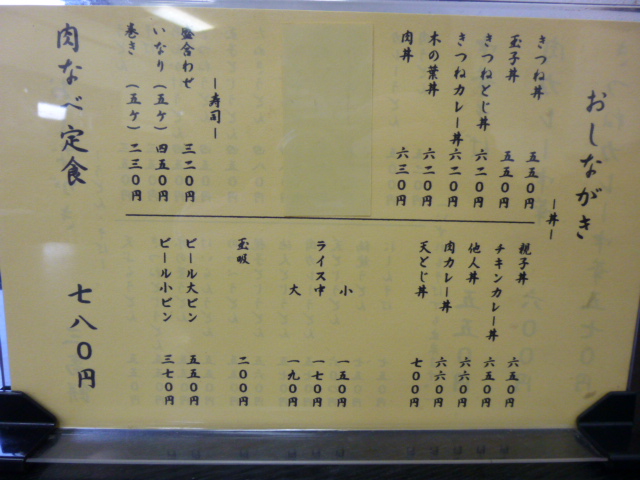 おしながき
―丼―
きつね丼 五五0円
玉子丼 五五0円
きつねとじ丼 六二0円
きつねカレー丼 六二0円
木の葉丼 六二0円
肉丼 六三0円
―寿司―
盛合わせ 三二0円
いなり(五ケ) 四五0円
巻き(五ケ) 二三0円
親子丼 六五0円
チキンカレー丼 六五0円
他人丼 六六0円
肉カレー丼 六六0円
天とじ丼 七00円
ライス中 小 一五0円
一七0円
大 一九0円
玉吸 二00円
ビール大ビン 五五0円
ビール小ビン 三七0円
肉なべ定食 七八0円